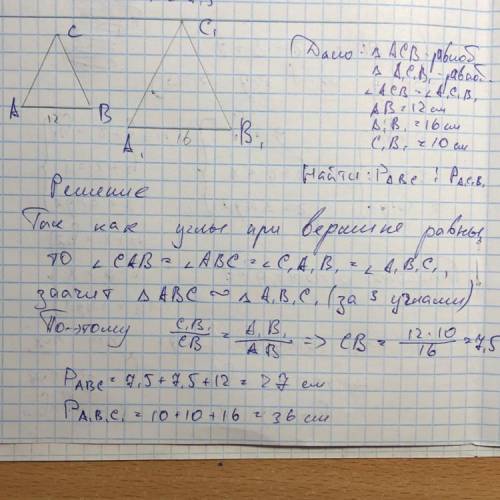 C
C₁
A
12
B
A₁
16
B₁
Дано: △ ACB - равноб
△ A₁C₁B₁ - равноб
∠ACB = ∠A₁C₁B₁
AB = 12 см
A₁B₁ = 16 см
C₁B₁ = 10 см
Найти: P ABC ; P A₁C₁B₁
Решение
Так как углы при вершине равны,
то ∠CAB = ∠ABC = ∠C₁A₁B₁ = ∠A₁B₁C₁,
значит △ABC ∞ △A₁B₁C₁ (за 3 углами)
Поэтому C₁B₁/CB = A₁B₁/AB => CB = 12·10/16 = 7,5
P ABC = 7,5 + 7,5 + 12 = 27 см
P A₁B₁C₁ = 10 + 10 + 16 = 36 см